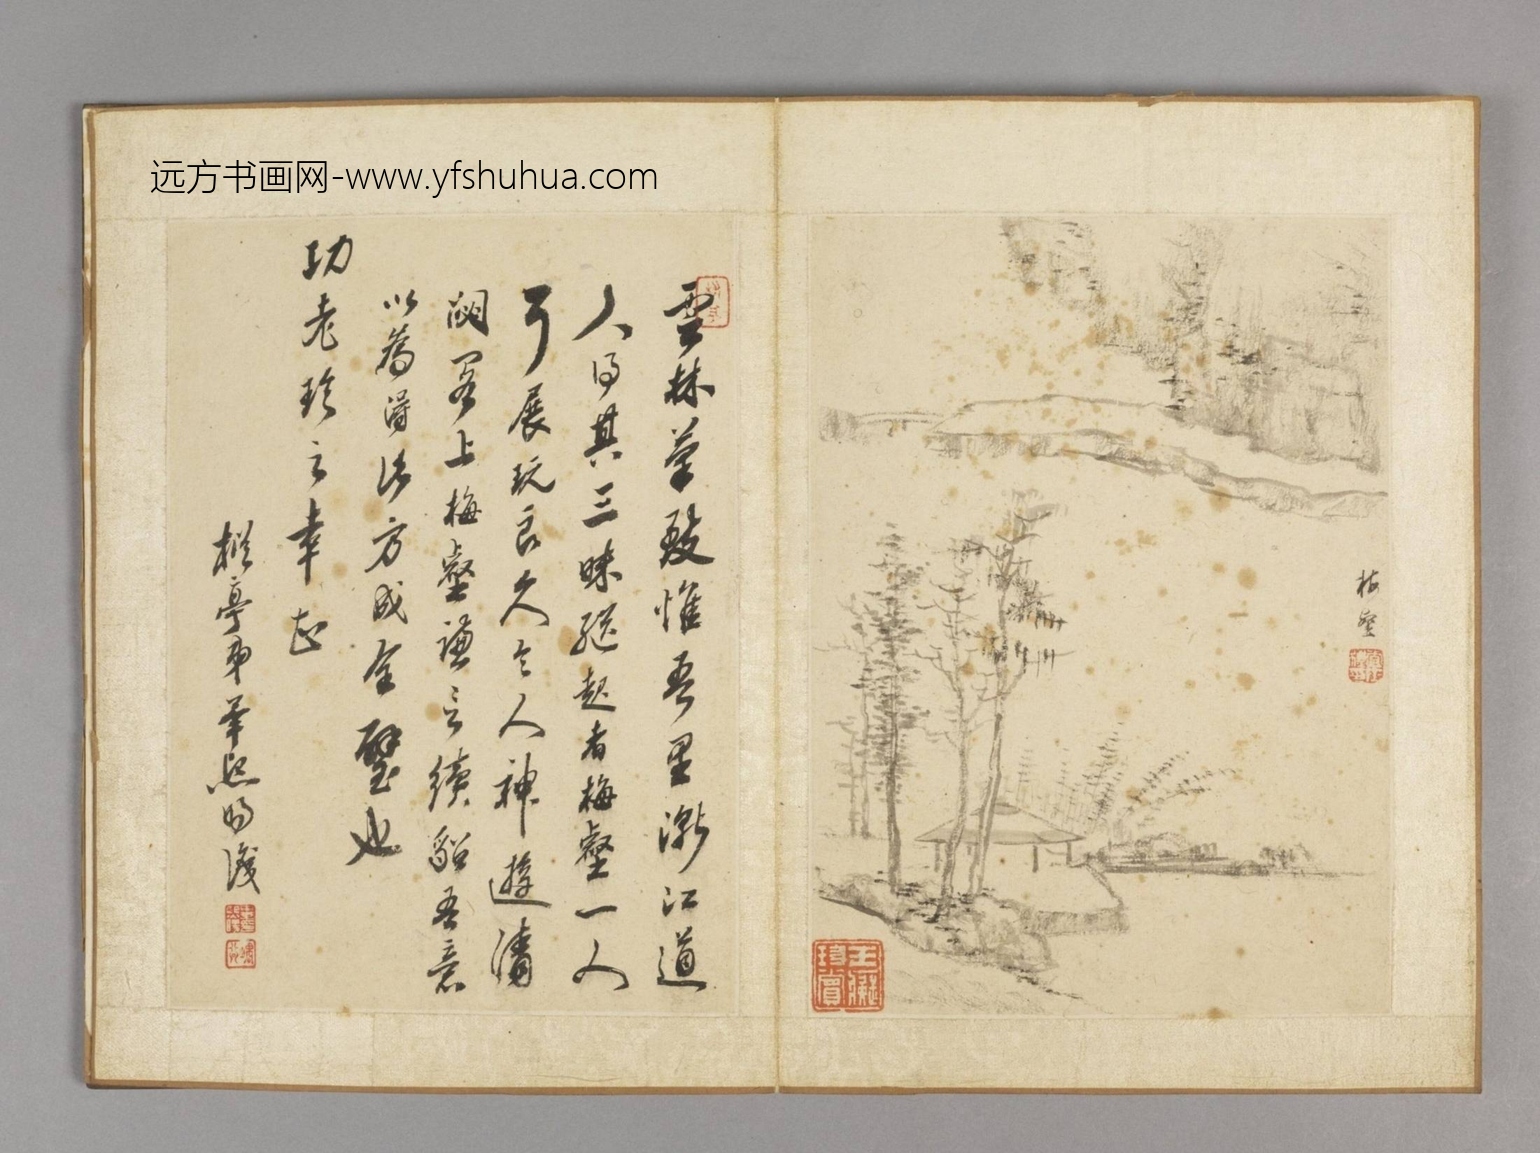 远方书画网-www.yfshuhua.com
雲林筆致惟吾里漸江道
人得其三昧繼起者梅壑一人
了展玩良久令人神遊清
閟閣上梅壑謙言續貂吾意
以為得法方成全璧也
功老珍之幸正
椒亭弟筆熙明識
梅壑
王儗
珍賞